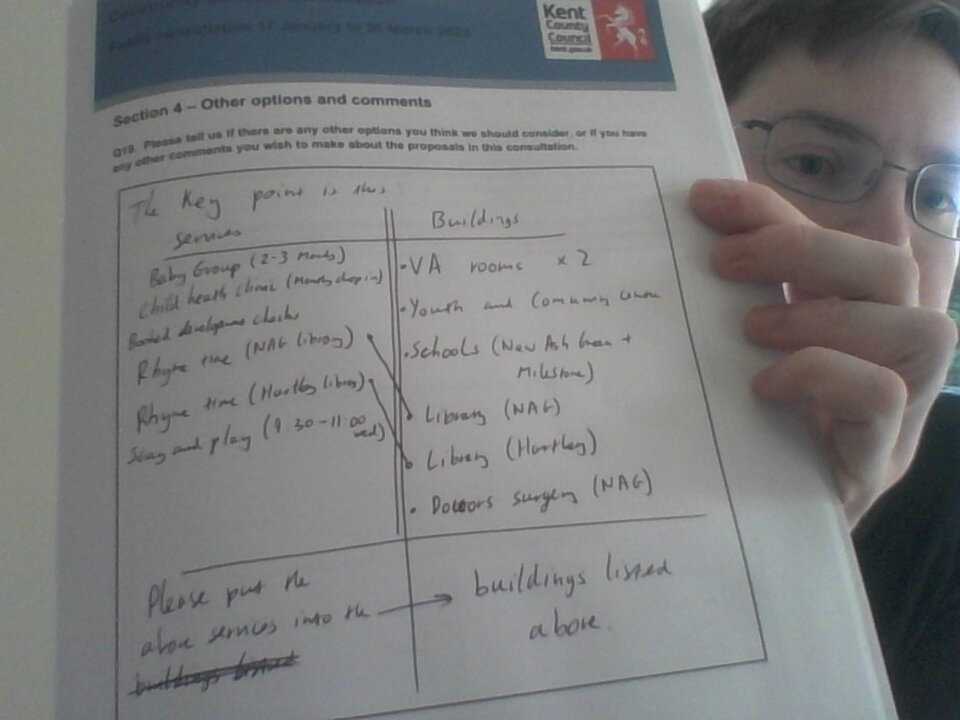 Public consultation 17 January to 26 March 2023
Kent
County
Council
kent.gov.uk
Section 4 – Other options and comments
Q19. Please tell us if there are any other options you think we should consider, or if you have
any other comments you wish to make about the proposals in this consultation.
The Key point is this
services
Baby Group (2-3 Months)
Child heath clinic (Monthly drop in)
Booked development checks
Rhyme time (NAG Library)
Rhyme time (Hartley library)
Stay and play (9.30-11.00
wed)
Buildings
• VA rooms x 2
• Youth and Community Centre
• Schools (New Ash Green +
Milestone)
• Library (NAG)
• Library (Hartley)
• Doctors surgery (NAG)
Please put the
above services into the
buildings listed
above.